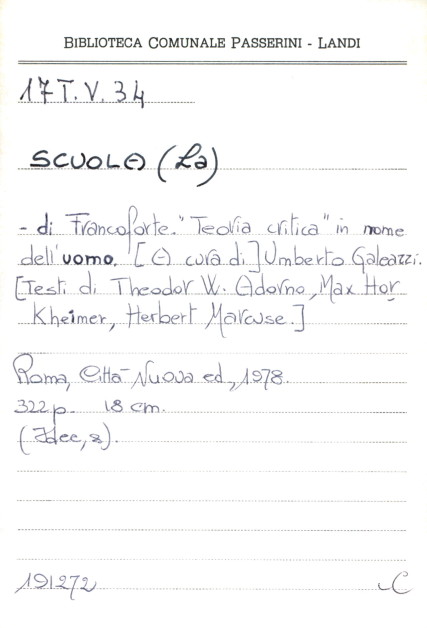 BIBLIOTECA COMUNALE PASSERINI - LANDI
17 T. V. 34
SCUOLA (La)
- di Francoforte. "Teoria critica" in nome
dell'uomo. [A cura di] Umberto Galeazzi.
[Testi di Theodor W. Adorno, Max Hor
Kheimer, Herbert Marcuse.]
Roma, Città Nuova ed., 1978.
322 p. 18 cm.
(Idee, 8).
191272 C